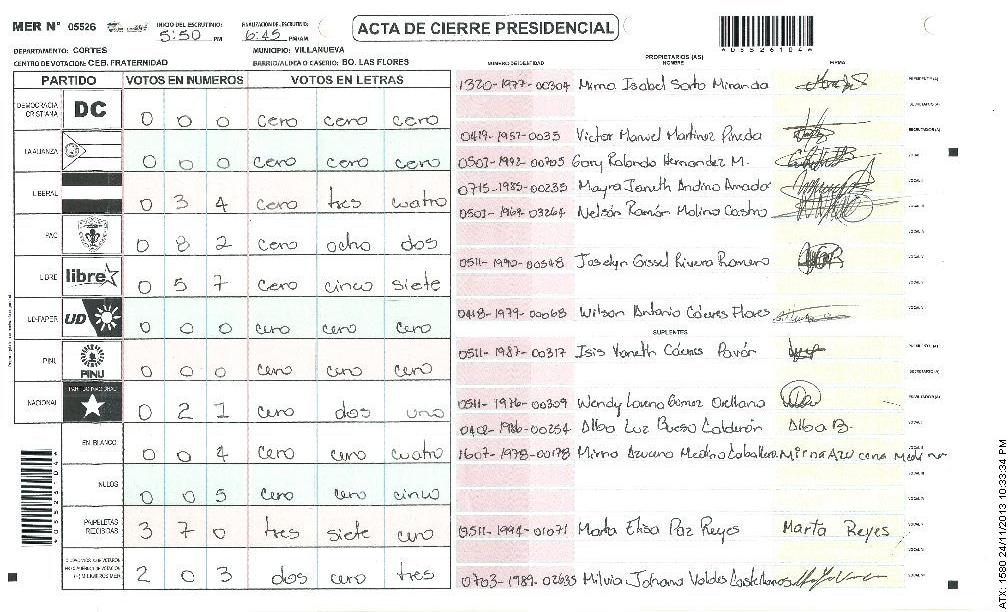 MER N° 05526
INICIO DEL ESCRUTINIO: 5:50 PM
FINALIZACION DEL ESCRUTINIO: 6:45 PM/AM
ACTA DE CIERRE PRESIDENCIAL
*05526104*
DEPARTAMENTO: CORTES
MUNICIPIO: VILLANUEVA
CENTRO DE VOTACION: CEB. FRATERNIDAD
BARRIO/ALDEA O CASERIO: BO. LAS FLORES
PARTIDO VOTOS EN NUMEROS VOTOS EN LETRAS
DEMOCRACIA CRISTIANA DC 0 0 0 cero cero cero
LA ALIANZA 0 0 0 cero cero cero
LIBERAL 0 3 4 cero tres cuatro
PAC 0 8 2 cero ocho dos
LIBRE libre 0 5 7 cero cinco siete
UD-FAPER UD 0 0 0 cero cero cero
PINU PINU 0 0 0 cero cero cero
NACIONAL PARTIDO NACIONAL 0 2 1 cero dos uno
EN BLANCO 0 0 4 cero cero cuatro
NULOS 0 0 5 cero cero cinco
PAPELETAS RECIBIDAS 3 7 0 tres siete cero
2 0 3 dos cero tres
NUMERO DE IDENTIDAD PROPIETARIOS (AS) NOMBRE FIRMA
1320-1977-00304 Mirna Isabel Sorto Miranda
0419-1957-0035 Victor Manuel Martinez Pineda
0503-1992-00705 Gary Rolando Hernandez M.
0715-1985-00235 Mayra Janeth Andino Amador
0501-1969-03264 Nelson Ramón Molina Castro
0511-1990-00548 Joselyn Gissel Rivera Romero
0418-1979-00068 Wilson Antonio Cáceres Flores
SUPLENTES
0511-1987-00317 Isis Yaneth Cáceres Pavón
0511-1976-00309 Wendy Lorena Gomez Orellana
0402-1986-00254 Alba Luz Bueso Calderón Alba B.
1607-1978-00178 Mirna Azucena Medina Caballero Mirna Azucena Medina
0511-1994-01071 Marta Elisa Paz Reyes Marta Reyes
0703-1989-02635 Milvia Johana Valdes Castellanos
ATX: 1580 24/11/2013 10:33:34 PM